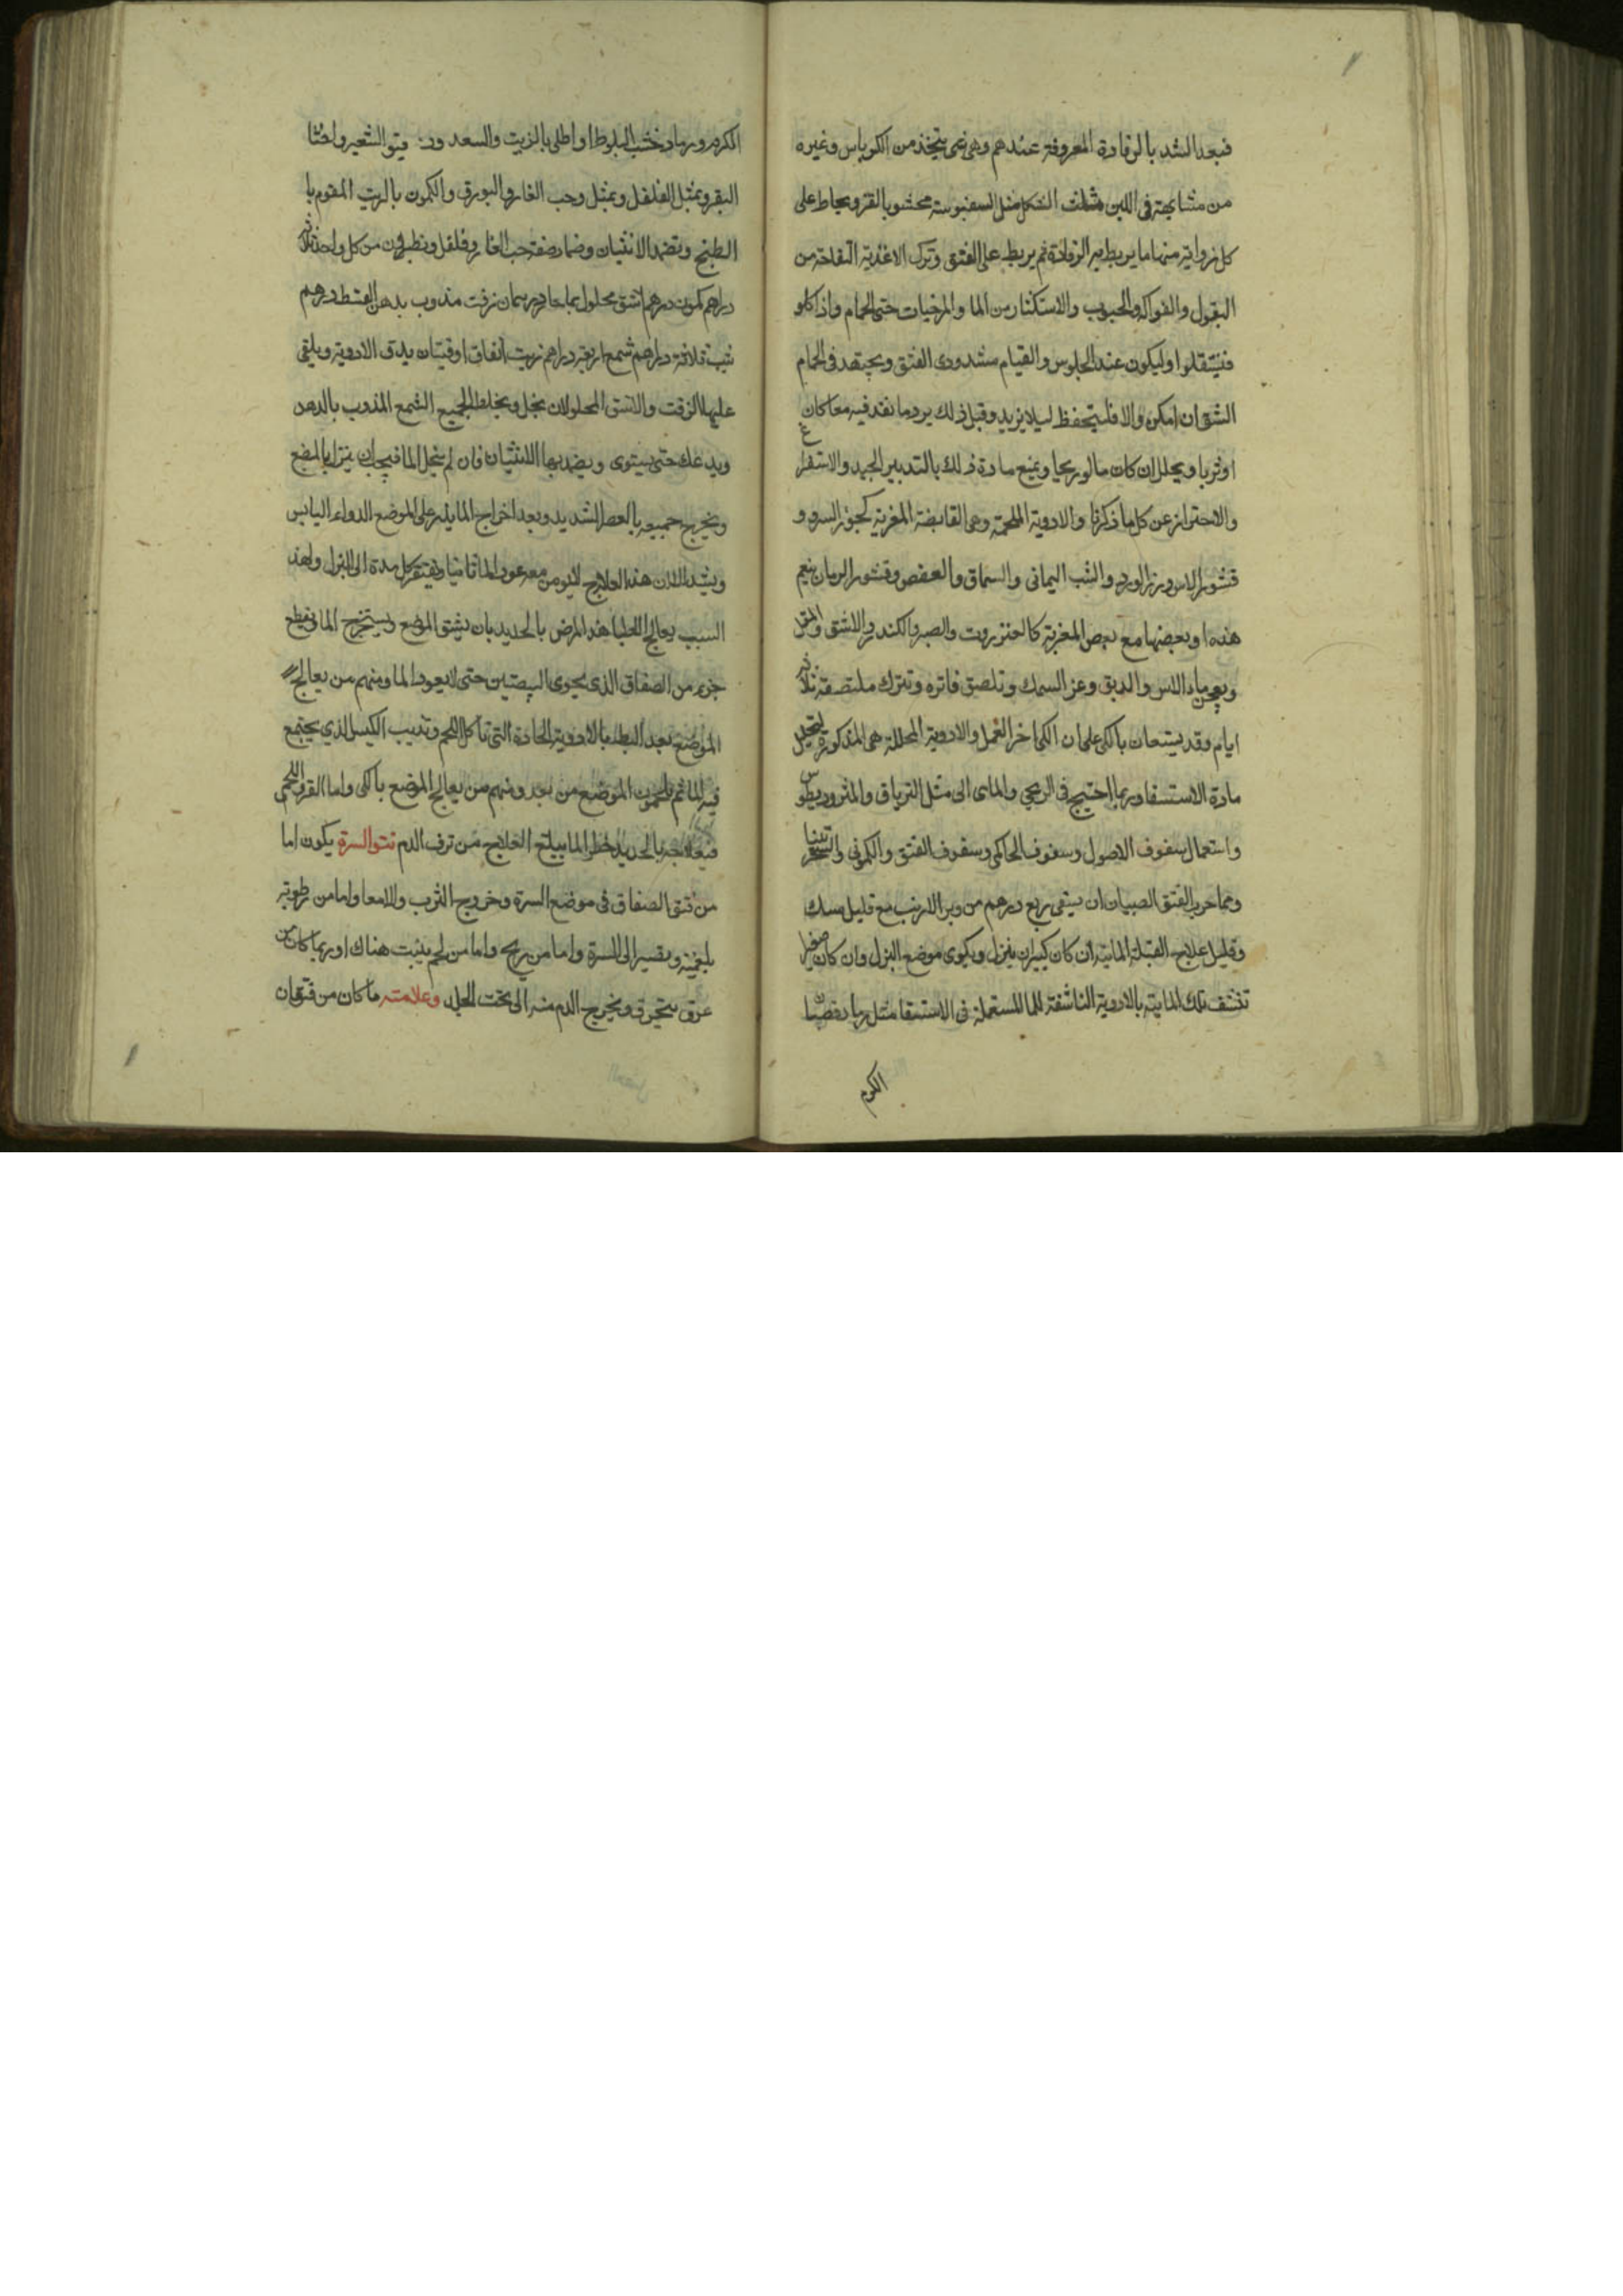 فبعد الشد بالرفادة المعروفة عندهم وهي شي يتخذ من الكرباس وغيره
من مشابهة في اللين مثلث الشكل مثل السنبوسة محشو بالقز ويخاط على
كل زواية منها ما يربط به الرفادة ثم يربط على الفتق وترك الاغذية النفاخة من
البقول والفواكه والحبوب والاستكثار من الما والمرخيات حتى الحمام واذا كلو
فليستقلوا وليكون عند الجلوس والقيام مشدودى الفتق ويجتهد في الحام
الشق ان امكن والا فليتحفظ ليلا يزيد وقبل ذلك يرد ما نفد فيه معا كان
او ثربا ويحلل ان كان ما او ريحا ويمنع مادة ذلك بالتدبير الجيد والاستفراغ
والاحتراز عن كل ما ذكرنا والادوية الملحمة وهى القابضة المغرية كجوز السرو و
قشور الاس وبزر الورد والشب اليمانى والسماق والعفص وقشور الرمان ينعم
هذه او بعضها مع بعض المغرية كالعنزروت والصبر والكندر والاشق والمقل
ويعجن بماء الاس والدبق وغرا السمك وتلصق فاتره وتترك ملتصقة ثلاثة
ايام وقد يستعان بالكى على ان الكى اخر العمل والادوية المحللة هى المذكورة لتحليل
مادة الاستسقا وربما احتيج فى الريحي والماى الى مثل الترياق والمثروديطوس
واستعمال سفوف الاصول وسفوف الحاكمى وسفوف الفتق والكمونى والسجزنيا
ومما جرب لفتق الصبيان ان يسقى ربع درهم من وبر الارنب مع قليل مسك
وقليل علاج القيلة المائية ان كان كبيرا ان يبزل ويكوى موضع البزل وان كان صغيرا
تنشف تلك المايية بالادوية الناشفة للما المستعملة فى الاستسقا مثل رماد قضبان
الكرم
الكرم ورماد خشب البلوط او اطلى بالزيت والسعد ودقيق الشعير واخثا
البقر وبمثل الفلفل وبمثل وحب الغار والبورق والكمون بالزيت المقوم با
الطبخ وتضمد الانثيان وضماد صفته حب الغار وفلفل ونطرون من كل واحد ثلاثة
دراهم كمون درهم اشق محلول بما حار درهمان زفت مذوب بدهن القسط درهم
شب ثلاثة دراهم شمع اربعة دراهم زيت انفاق اوقيتان يدق الادوية ويلقى
عليها الزفت والاشق المحلولان بخل ويخلط الجميع الشمع المذوب بالدهن
ويدعك حتى يستوى ويضمد بها الانثيان فان لم ينحل الما فيجب ان يبزل الموضع
ويخرج جميعه بالعصر الشديد وبعد اخراج الما يذر على الموضع الدواء اليابس
ويشد الا ان هذا العلاج لا يومن معه عود الما ثانيا ويفتقر كل مدة الى البزل ولهذ
السبب يعالج الاطبا هذا المرض بالحديد بان يشق الموضع ويستخرج الما ويقطع
جزء من الصفاق الذى يحوى البيضتين حتى لا يعود الما ومنهم من يعالج
الموضع بعد البط بالادوية الحادة التى تاكل اللحم وتذيب الكيس الذي يجتمع
فيه الما ثم يلحمون الموضع من بعد ومنهم من يعالج الموضع بالكى واما القرو اللحمى
فعلاجه بالحديد خطر لما يبلغ العلاج من نزف الدم نتو السرة يكون اما
من فتق الصفاق فى موضع السرة وخروج الثرب والامعا واما من رطوبة
بلغمية وتصير الى السرة واما من ريح واما من لحم ينبت هناك او ربما كان من
عرق ينخرق ويخرج الدم منه الى تحت الجلد وعلامته ما كان من فتق ان